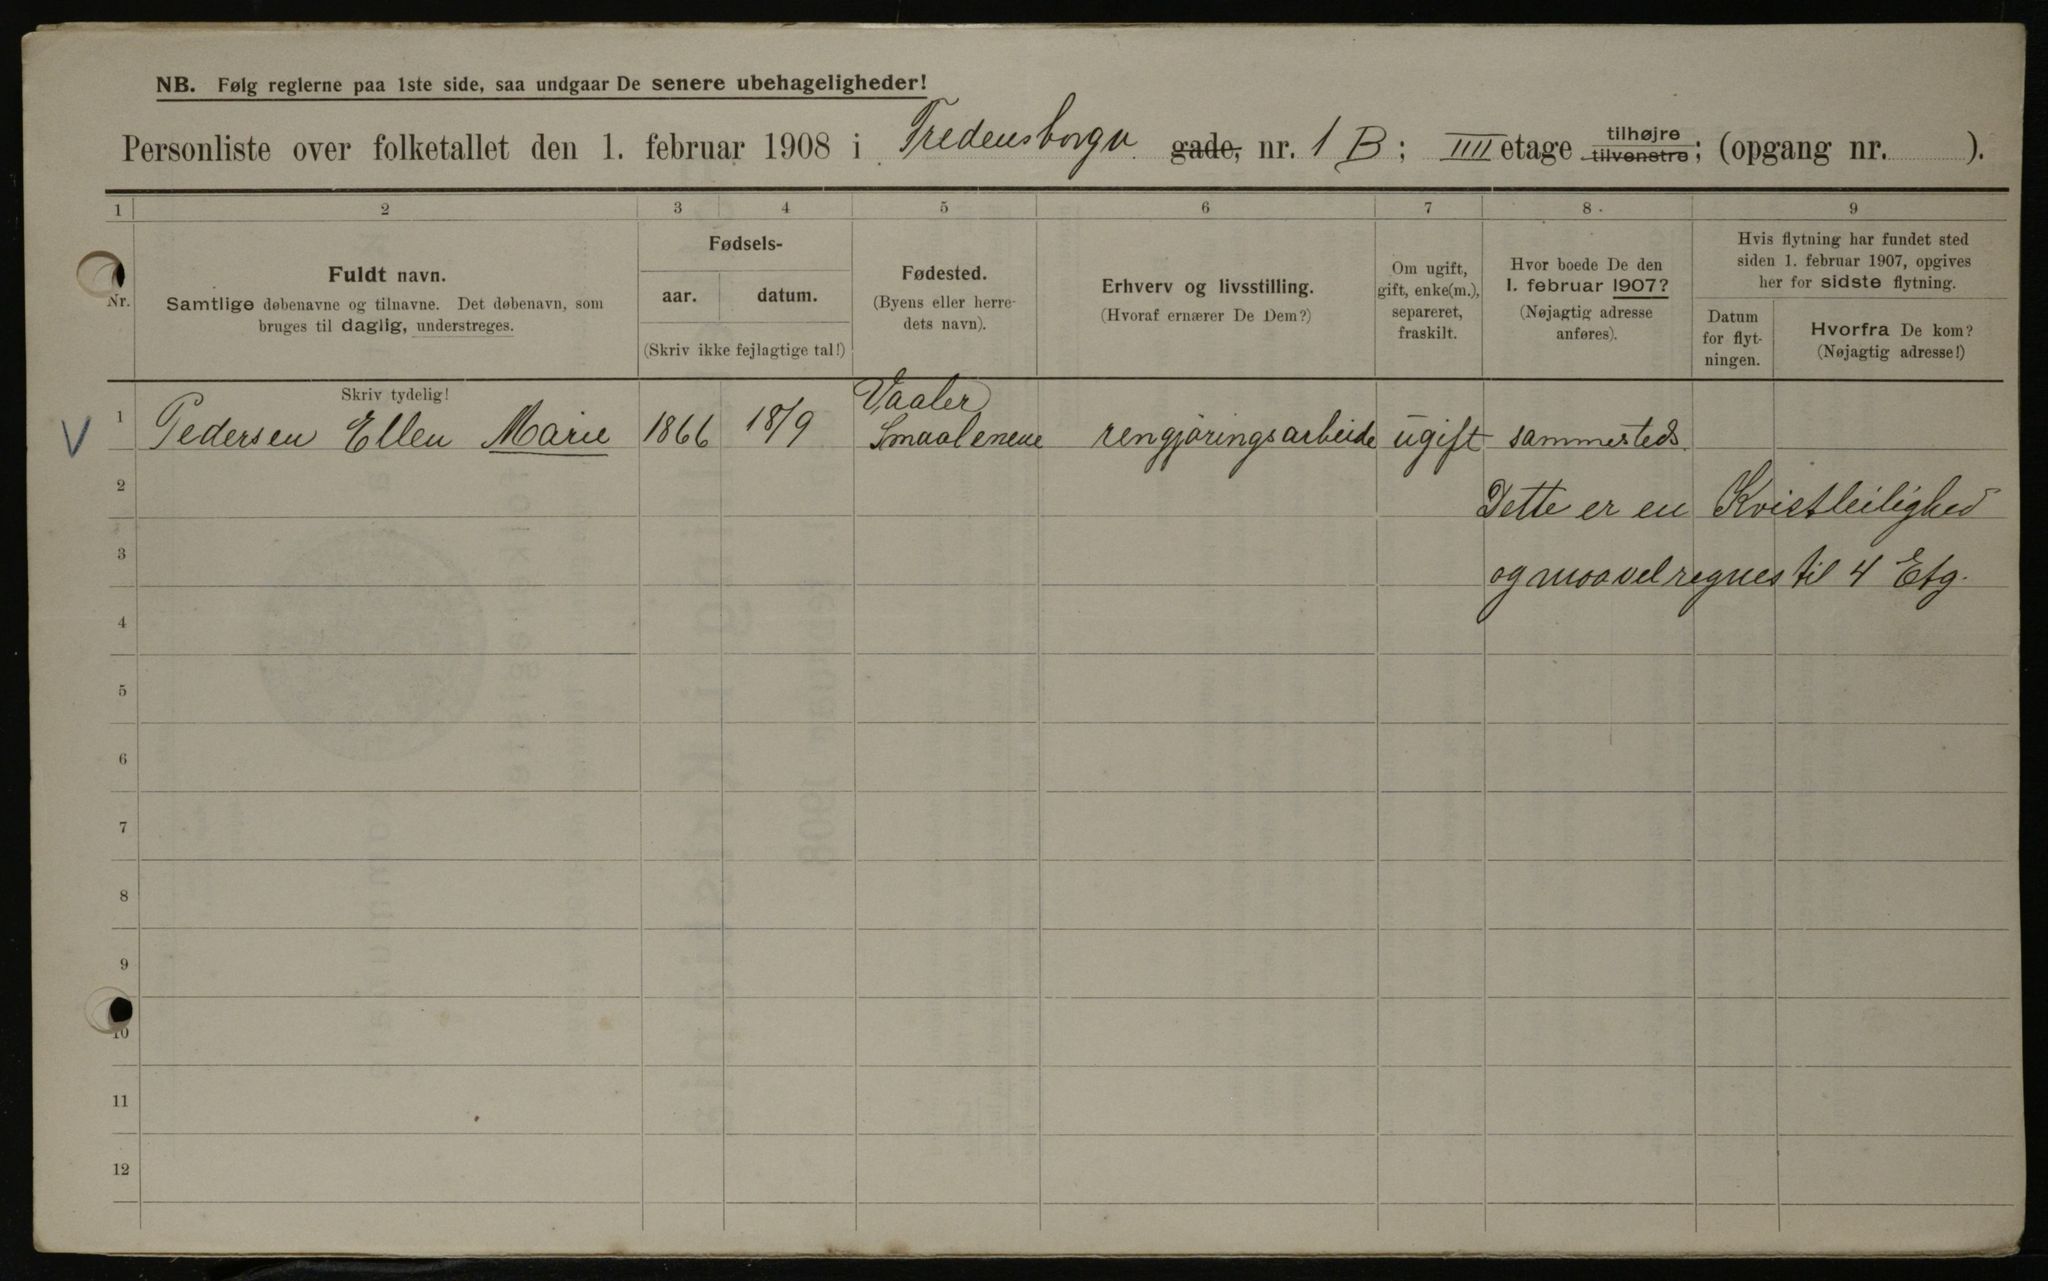 NB. Følg reglerne paa 1ste side, saa undgaar De senere ubehageligheder!
Personliste over folketallet den 1. februar 1908 i Fredensborgv. gade, nr. 1 B; IIII etage tilhøjre tilvenstre; (opgang nr. ).
1 2 3 4 5 6 7 8 9
Nr.
Fuldt navn.
Samtlige døbenavne og tilnavne. Det døbenavn, som
bruges til daglig, understreges.
Fødsels-
aar. datum.
(Skriv ikke fejlagtige tal!)
Fødested.
(Byens eller herre-
dets navn).
Erhverv og livsstilling.
(Hvoraf ernærer De Dem?)
Om ugift,
gift, enke(m.),
separeret,
fraskilt.
Hvor boede De den
1. februar 1907?
(Nøjagtig adresse
anføres).
Hvis flytning har fundet sted
siden 1. februar 1907, opgives
her for sidste flytning.
Datum
for flyt-
ningen.
Hvorfra De kom?
(Nøjagtig adresse!)
Skriv tydelig!
V 1 Pedersen Ellen Marie 1866 18/9 Vaaler
Smaalenene rengjøringsarbeide ugift sammesteds.
2 Dette er en Kvistleilighed
3 og maa vel regnes til 4 Etg.
4
5
6
7
8
9
10
11
12